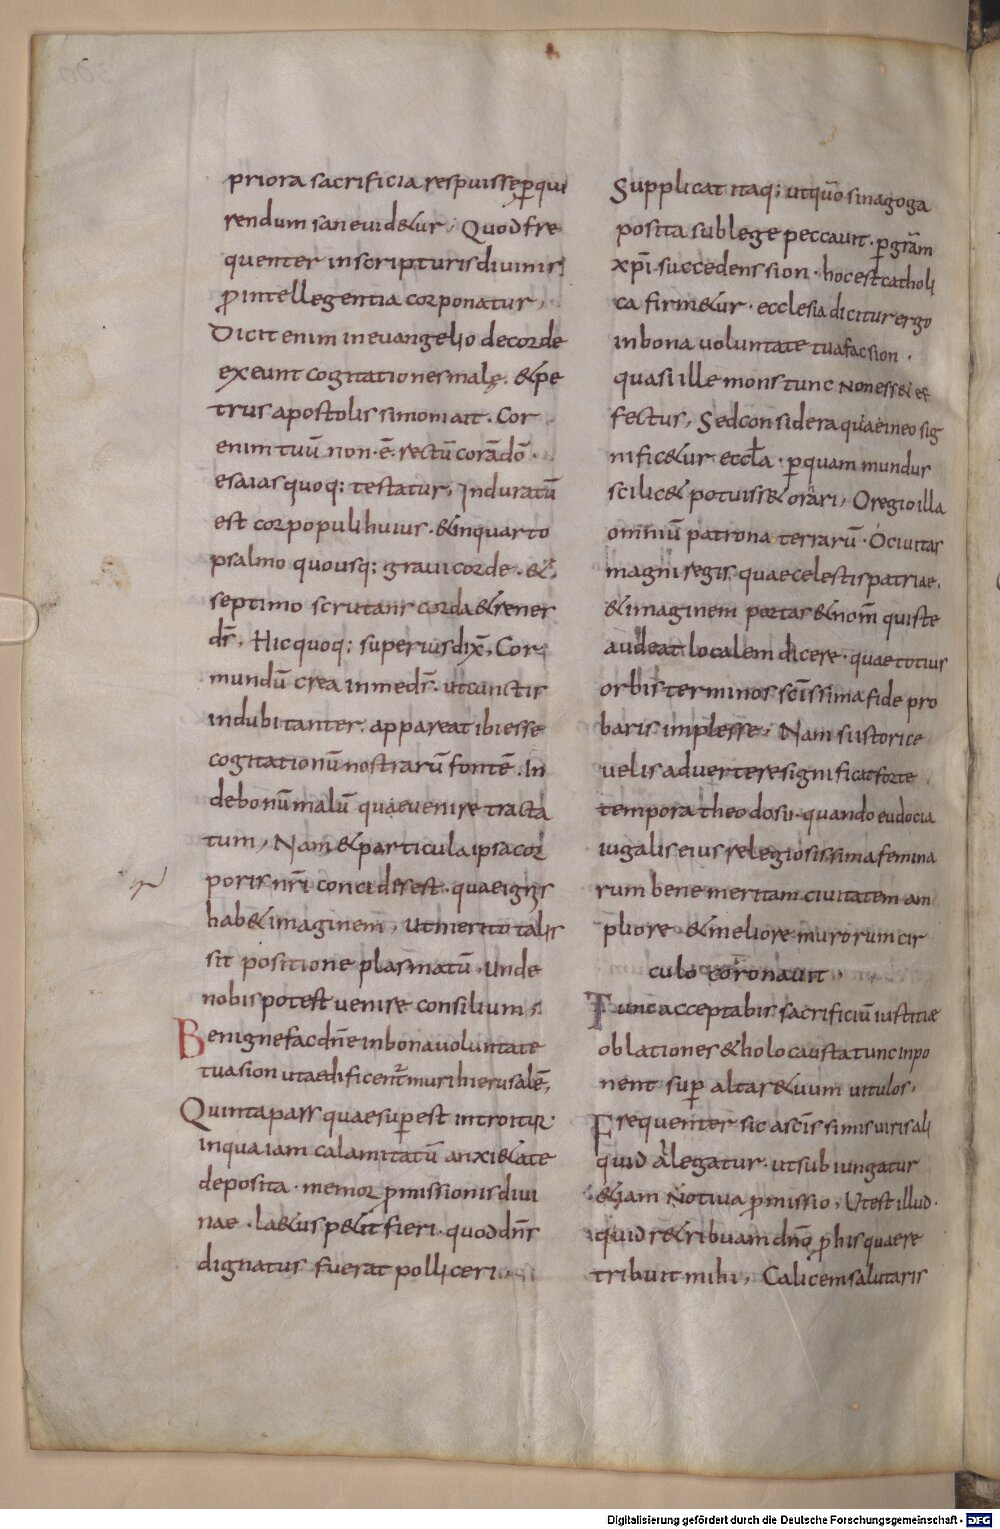 priora sacrificia respuisse ꝑqui
rendum sane uid&ur; Quod fre
quenter in scripturis diuinis
ꝓintellegentia cor ponatur,
Dicit enim in euangelio de corde
exeunt cogitationes malę. & pe
trus apostolus simoni ait. Cor
enim tuū non ē rectū corā dō.
esaias quoq; testatur, Induratū
est cor populi huius. & in quarto
psalmo quousq; graui corde. & 
septimo scrutans corda & renes
dr̄, Hic quoq; superius dix̄, Cor
mundū crea in me dr̄. ut cunctis
indubitanter appareat ibi esse
cogitationū nostrarū fontē. In
de bonū malū quae uenire tracta
tum, Nam & particula ipsa cor
poris nr̄i conci dis est. quae ignis
hab& imaginem, ut merito talis
sit positione plasmatū, unde
nobis potest uenire consilium;
Benigne fac dn̄e in bona uoluntate
tua sion ut aedificent̄ muri hierusalē,
Quinta pars quae suꝑest introitur
in qua iam calamitatū anxi&ate
deposita. memor ꝓmissionis diui
nae. la&us p&it fieri. quod dn̄s
dignatus fuerat polliceri,
Supplicat itaq; ut quō sinagoga
posita sub lege peccauit. ꝑ grām
xp̄i succedens sion. hoc est catholi
ca firm&ur. ecclesia dicitur ergo
in bona uoluntate tua fac sion.
quasi ille mons tunc non ess& ef
fectus, Sed considera quae in eo sig
nific&ur eccl̄a. ꝑ quam mundus
scilic& potuiss& orari, O regio illa
omniū patrona terrarū. O ciuitas
magni regis quae celestis patriae,
& imaginem portas & nom̄ quis te
audeat localem dicere. quae totius
orbis terminos scīssima fide pro
baris implesse, Nam si istorice
uelis aduertere significat forte
tempora theodosii. quando eudocia
iugalis eius relegiosissima femina
rum bene meritam ciuitatem am
pliore & meliore murorum cir
culo coronauit,
Tunc acceptabis sacrificiū iustitiæ
oblationes & holocausta tunc inpo
nent suꝑ altare tuum uitulos,
Frequenter sic a scīssimis uiris ali
quid alegatur. ut subiungatur
& iam uotiua ꝓmissio, Ut est illud.
quid r&ribuam dn̄o ꝓ his quae re
tribuit mihi, Calicem salutaris
Digitalisierung gefördert durch die Deutsche Forschungsgemeinschaft - DFG